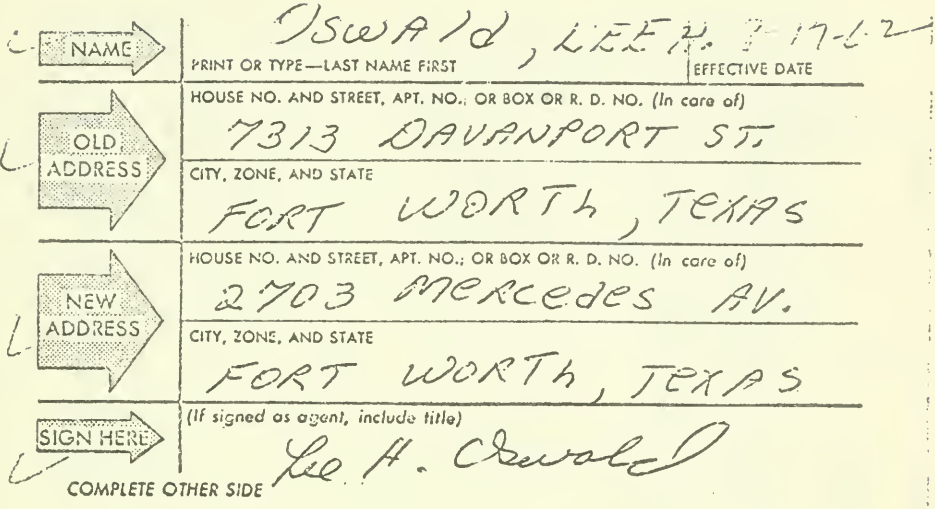 NAME
Oswald, LEE H.
PRINT OR TYPE—LAST NAME FIRST
EFFECTIVE DATE
OLD ADDRESS
HOUSE NO. AND STREET, APT. NO.; OR BOX OR R. D. NO. (In care of)
7313 DAVANPORT ST.
CITY, ZONE, AND STATE
FORT WORTh, TEXAS
NEW ADDRESS
HOUSE NO. AND STREET, APT. NO.; OR BOX OR R. D. NO. (In care of)
2703 MERCEdES AV.
CITY, ZONE, AND STATE
FORT WORTh, TEXAS
SIGN HERE
(If signed as agent, include title)
Lee H. Oswald
COMPLETE OTHER SIDE